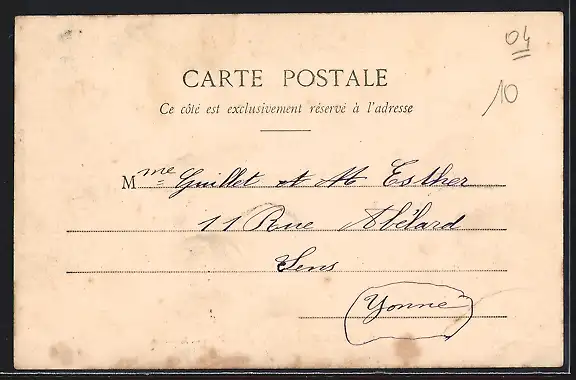 04
10
CARTE POSTALE
Ce côté est exclusivement réservé à l'adresse
Mme Guillet et M Esther
11 Rue Abélard
Sens
Yonne